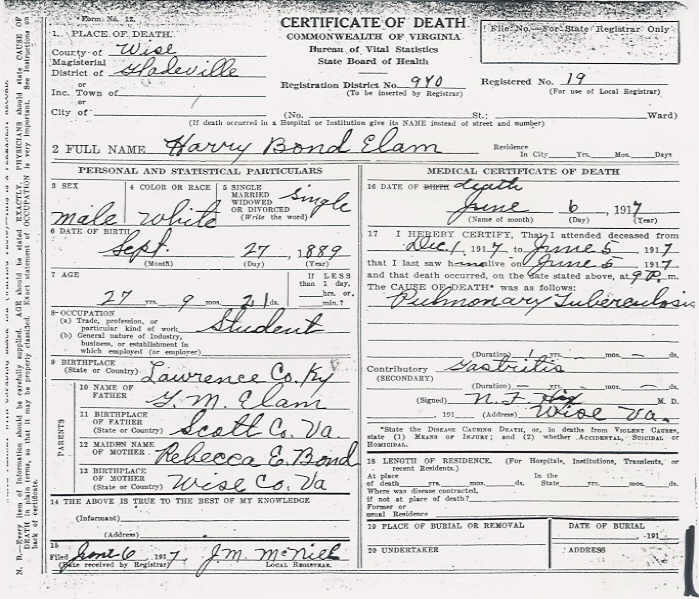 Form No. 12.
CERTIFICATE OF DEATH
COMMONWEALTH OF VIRGINIA
Bureau of Vital Statistics
State Board of Health
File No.—For State Registrar Only
1. PLACE OF DEATH.
County of Wise
Magisterial
District of Gladeville
or
Inc. Town of
or
City of
Registration District No. 940
(To be inserted by Registrar)
Registered No. 19
(For use of Local Registrar)
(No. St.; Ward)
(If death occurred in a Hospital or Institution give its NAME instead of street and number)
2 FULL NAME Harry Bond Elam
Residence
In City Yrs. Mos. Days
PERSONAL AND STATISTICAL PARTICULARS
3 SEX
male
4 COLOR OR RACE
White
5 SINGLE
MARRIED
WIDOWED
OR DIVORCED
(Write the word)
Single
6 DATE OF BIRTH
Sept. 27, 1889
(Month) (Day) (Year)
7 AGE
27 yrs. 9 mos. 21 ds.
If LESS
than 1 day,
hrs. or
min.?
8—OCCUPATION
(a) Trade, profession, or
particular kind of work
Student
(b) General nature of Industry,
business, or establishment in
which employed (or employer)
9 BIRTHPLACE
(State or Country) Lawrence Co. Ky
PARENTS
10 NAME OF
FATHER
M. Elam
11 BIRTHPLACE
OF FATHER
(State or Country) Scott Co. Va.
12 MAIDEN NAME
OF MOTHER Rebecca E. Bond
13 BIRTHPLACE
OF MOTHER
(State or Country) Wise Co. Va
14 THE ABOVE IS TRUE TO THE BEST OF MY KNOWLEDGE
(Informant)
(Address)
15
Filed June 6 1917, J. M. McNiel
(Date received by Registrar) LOCAL REGISTRAR.
MEDICAL CERTIFICATE OF DEATH
16 DATE OF BIRTH Death
June 6, 1917
(Name of month) (Day) (Year)
17 I HEREBY CERTIFY, That I attended deceased from
Dec 1 1917 to June 5 1917
that I last saw him alive on June 5 1917
and that death occurred, on the date stated above, at 9 P. m.
The CAUSE OF DEATH* was as follows:
Pulmonary Tuberculosis
(Duration) 1 yrs. mos. ds.
Contributory Gastritis
(SECONDARY)
(Duration) yrs. mos. ds.
(Signed) N. F. M. D.
191 (Address) Wise Va.
*State the DISEASE CAUSING DEATH, or, in deaths from VIOLENT CAUSES,
state (1) MEANS OF INJURY; and (2) whether ACCIDENTAL, SUICIDAL or
HOMICIDAL.
18 LENGTH OF RESIDENCE. (For Hospitals, Institutions, Transients, or
recent Residents.)
At place In the
of death yrs. mos. ds. State yrs. mos. ds.
Where was disease contracted,
if not at place of death?
Former or
usual Residence
19 PLACE OF BURIAL OR REMOVAL
DATE OF BURIAL
191
20 UNDERTAKER
ADDRESS
N. B.—Every item of Information should be carefully supplied. AGE should be stated EXACTLY. PHYSICIANS should state CAUSE OF
DEATH in plain terms, so that it may be properly classified. Exact statement of OCCUPATION is very important. See instructions on
back of certificate.